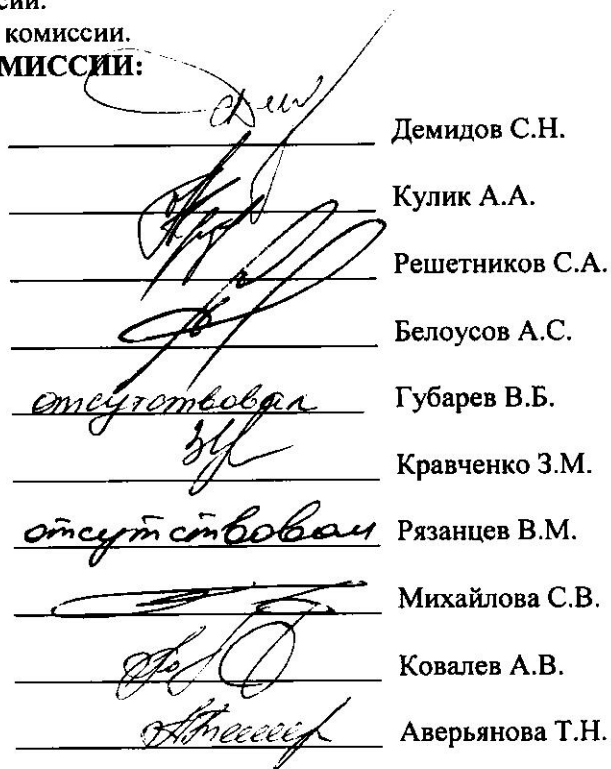 сии.
комиссии.
МИССИИ:
Демидов С.Н.
Кулик А.А.
Решетников С.А.
Белоусов А.С.
отсутствовал Губарев В.Б.
Кравченко З.М.
отсутствовал Рязанцев В.М.
Михайлова С.В.
Ковалев А.В.
Аверьянова Т.Н.